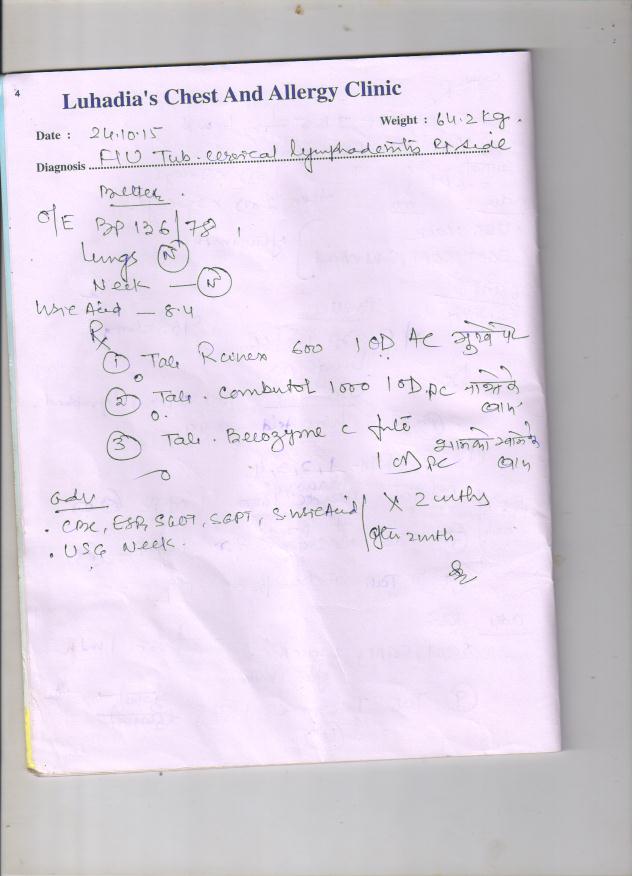 4
Luhadia's Chest And Allergy Clinic
Date : 24.10.15 Weight : 64.2 kg.
Diagnosis F/U Tub. cervical lymphadenitis Rt side
Better.
O/E BP 136/78
Lungs (N)
Neck — (N)
Uric Acid — 8.4
Rx
① Tab Rcinex 600 1 OD AC भूखे पेट
② Tab. Combutol 1000 1 OD. PC नाश्ते के बाद
③ Tab. Becozyme C forte
1 OD PC शामको खाने के बाद
Adv
. CBC, ESR, SGOT, SGPT, S. Uric Acid × 2 mths
. USG Neck. after 2 mth